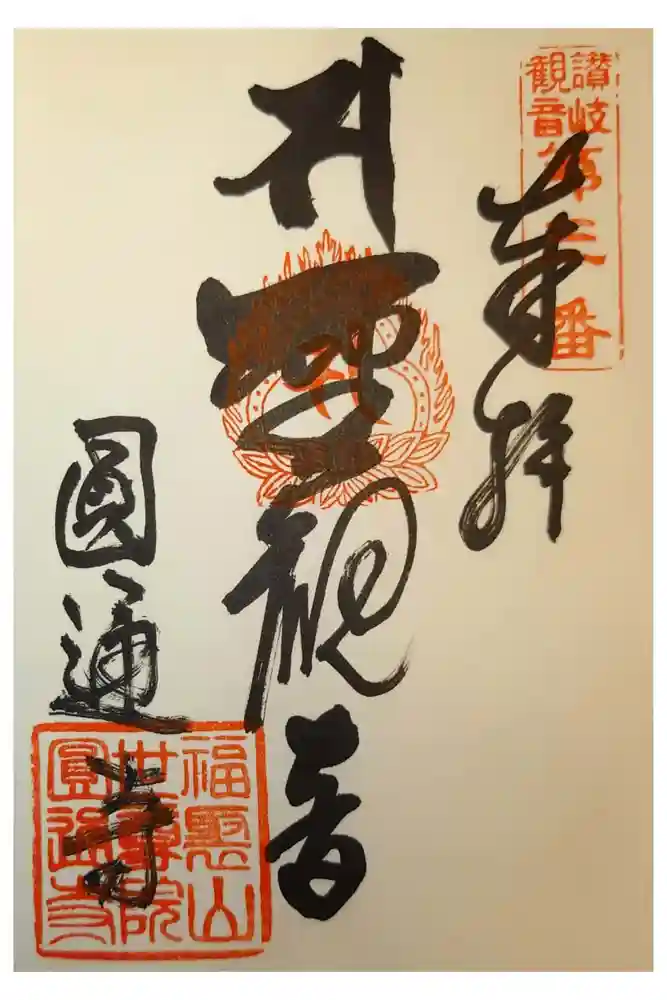 讃岐
観音
第
番
奉拝
聖観音
圓通寺
福聚山
世尊院
圓通寺